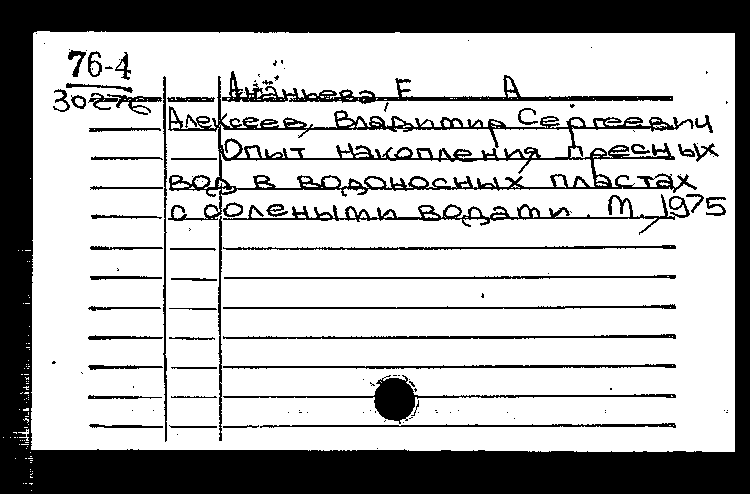 76-4
30276
Ананьева, Е А
Алексеев, Владимир Сергеевич
Опыт накопления пресных
вод в водоносных пластах
с солеными водами. М., 1975